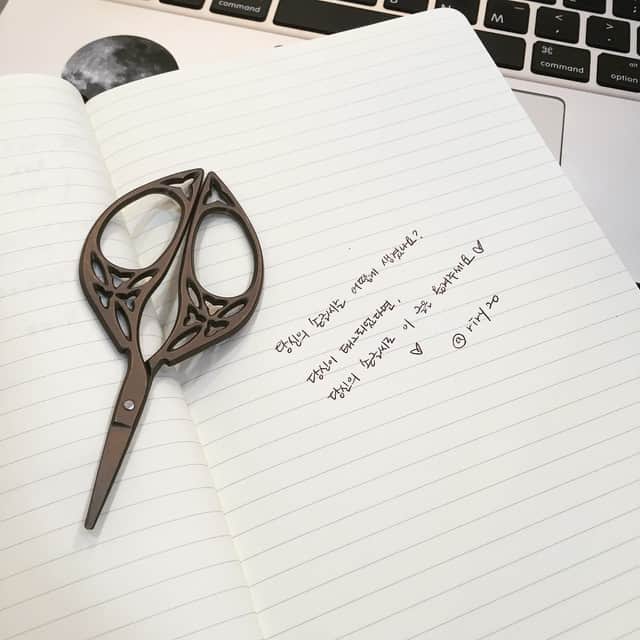 command
M
<
,
>
.
?
/
⌘
command
alt
option
당신의 손글씨는 어떻게 생겼나요?
당신이 태그되었다면,
당신의 손글씨로 이 글을 써주세요 ♡
♡
@riry20